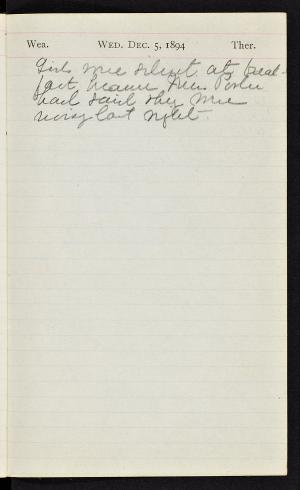 Wea. WED. DEC. 5, 1894 Ther.
Girls were silent at break-
fast, because Mrs. Porter
had said they were
noisy last night.